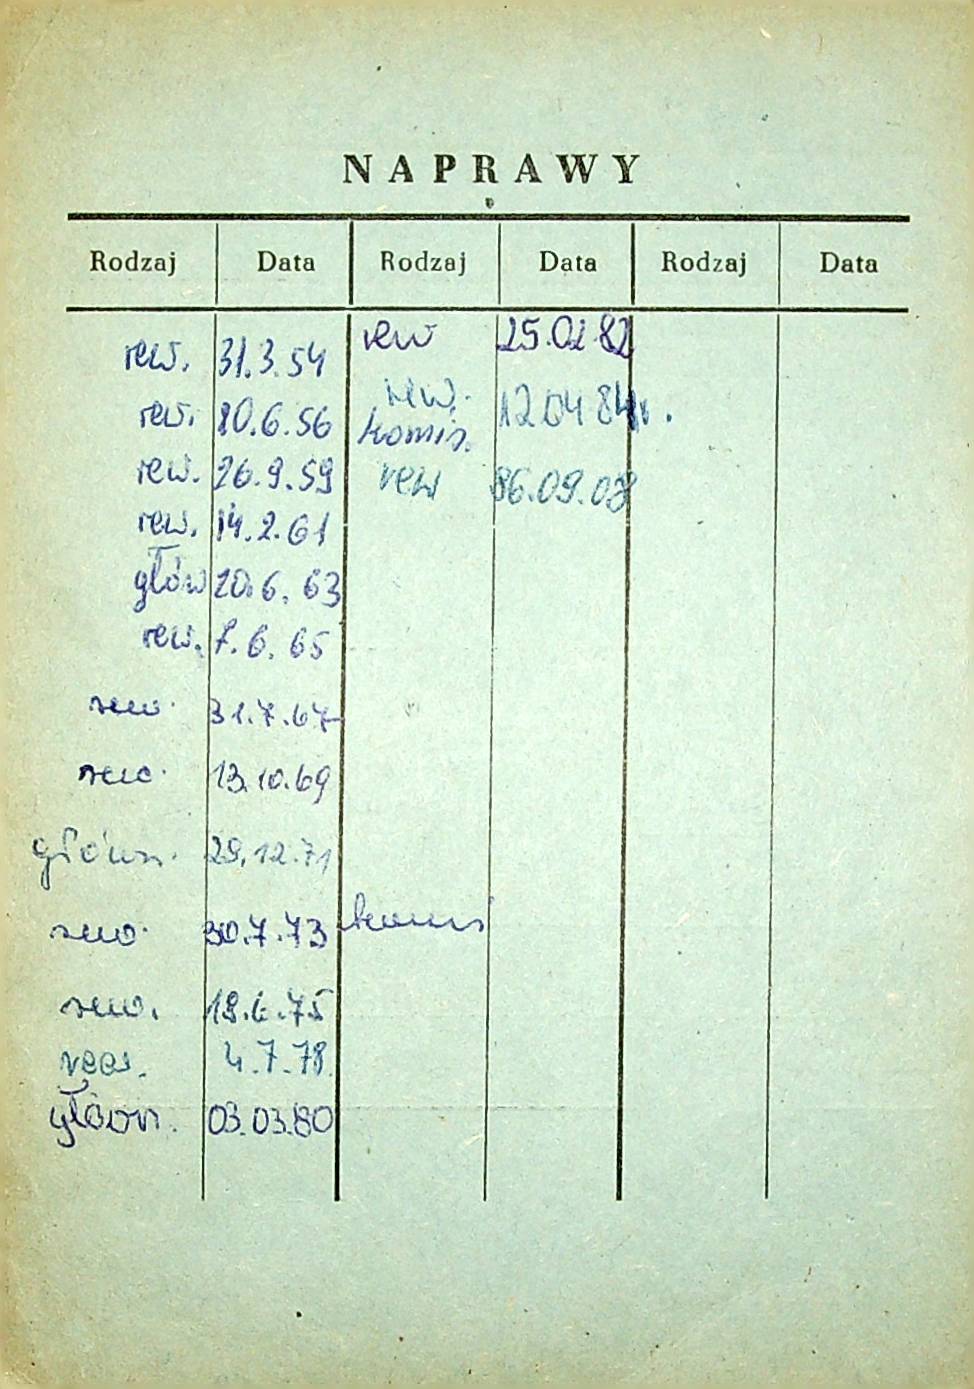 NAPRAWY
Rodzaj Data Rodzaj Data Rodzaj Data
rew. 31.3.54 rew 25.02.82
rew. 10.6.56 rew. komis. 12.04.84r.
rew. 26.9.59 rew 86.09.08
rew. 14.2.61
głów 20.6.63
rew. 7.6.65
rew. 31.7.67
rew. 13.10.69
główn. 29.12.71
rew. 30.7.73 komis
rew. 18.6.75
rew. 4.7.78
główn. 03.03.80